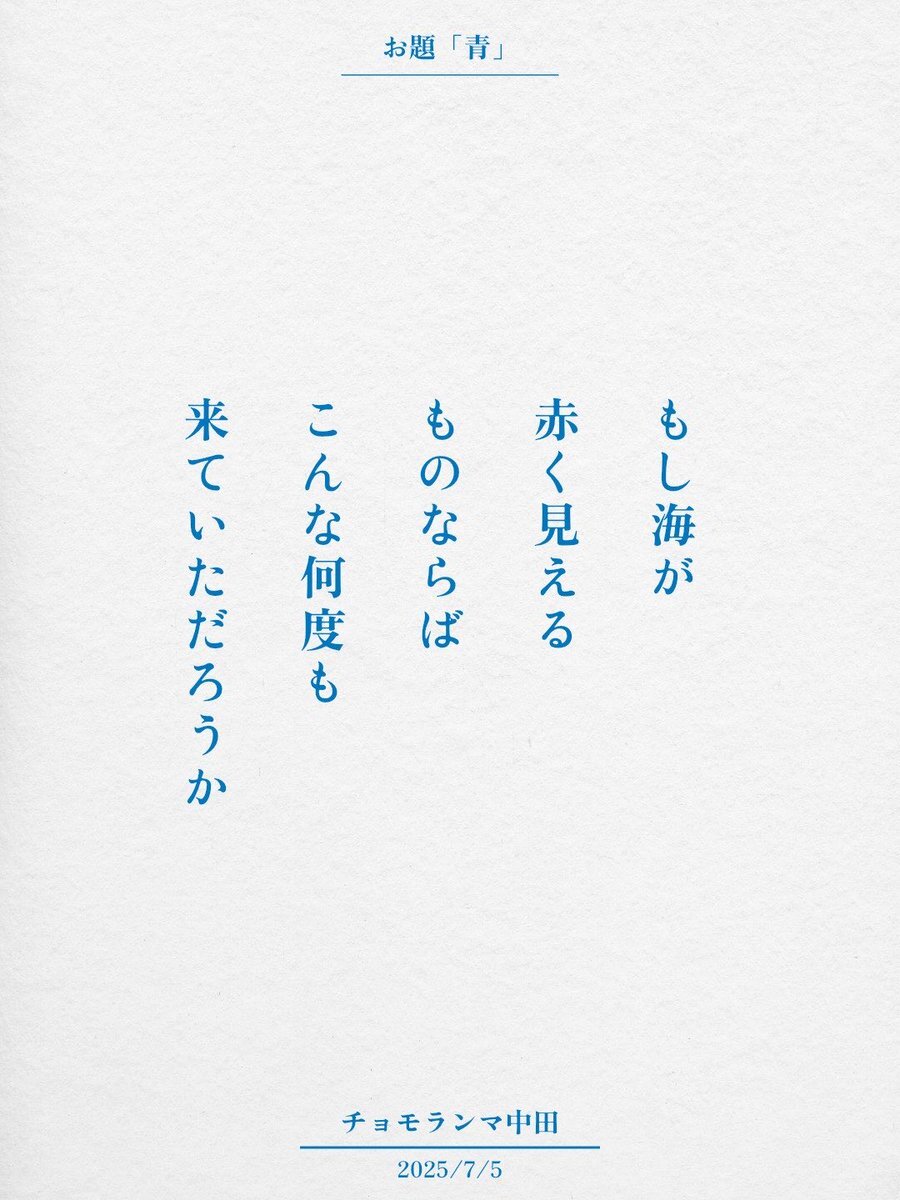 お題「青」
もし海が
赤く見える
ものならば
こんな何度も
来ていただろうか
チョモランマ中田
2025/7/5